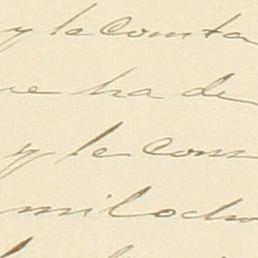 y la consta
ue ha de
y le con
mil ocho